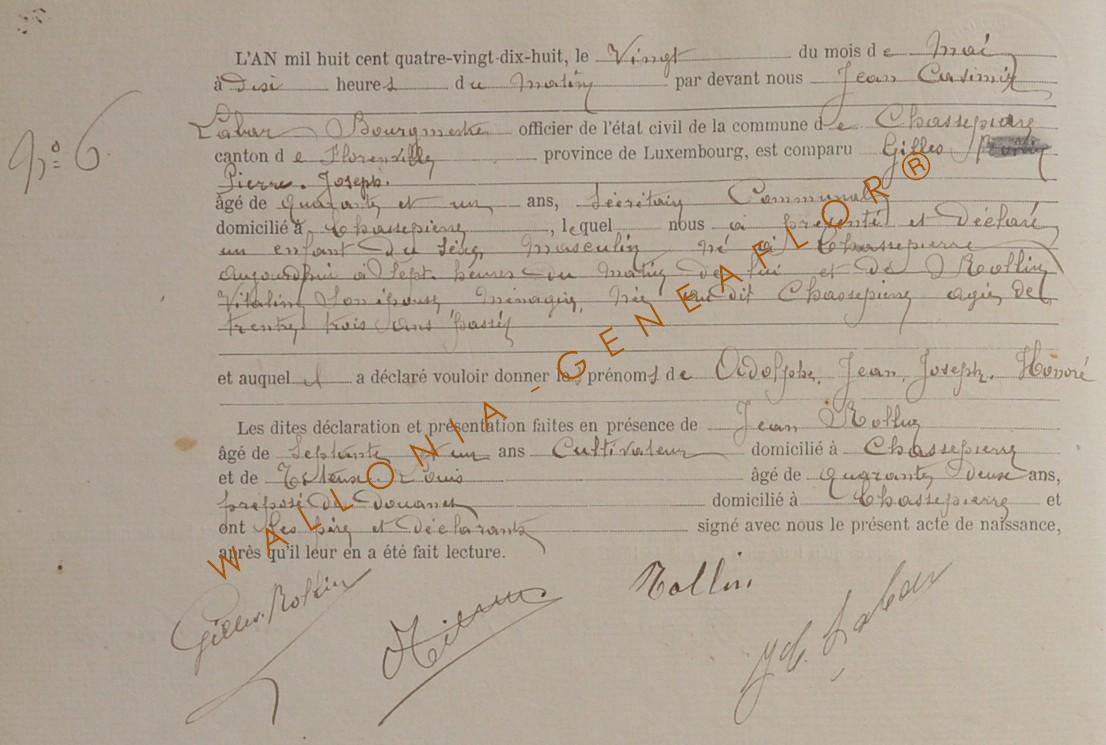 L'AN mil huit cent quatre-vingt-dix-huit, le Vingt du mois de Mai
à Dix heures du matin par devant nous Jean Casimir
Labar Bourgmestre officier de l'état civil de la commune de Chassepierre
N° 6
canton de Florenville province de Luxembourg, est comparu Gilles
Pierre Joseph.
âgé de quarante et un ans, Secrétaire Communal
domicilié à Chassepierre, lequel nous a présenté et déclaré
un enfant du sexe masculin, né à Chassepierre
aujourd'hui à sept heures du matin de lui et de Rollin
Vitaline son épouse, ménagère, née au dit Chassepierre agée de
trente trois ans passés
et auquel il a déclaré vouloir donner les prénoms de Adolphe, Jean, Joseph, Honoré
Les dites déclaration et présentation faites en présence de Jean Rollin
âgé de septante et un ans Cultivateur domicilié à Chassepierre
et de Louis âgé de quarante deux ans,
préposé des douanes domicilié à Chassepierre et
ont les père et déclarants signé avec nous le présent acte de naissance,
après qu'il leur en a été fait lecture.
Gilles-Rollin
Rollin
Jh. Labar
WALLONIA - GENEAFLOR ®